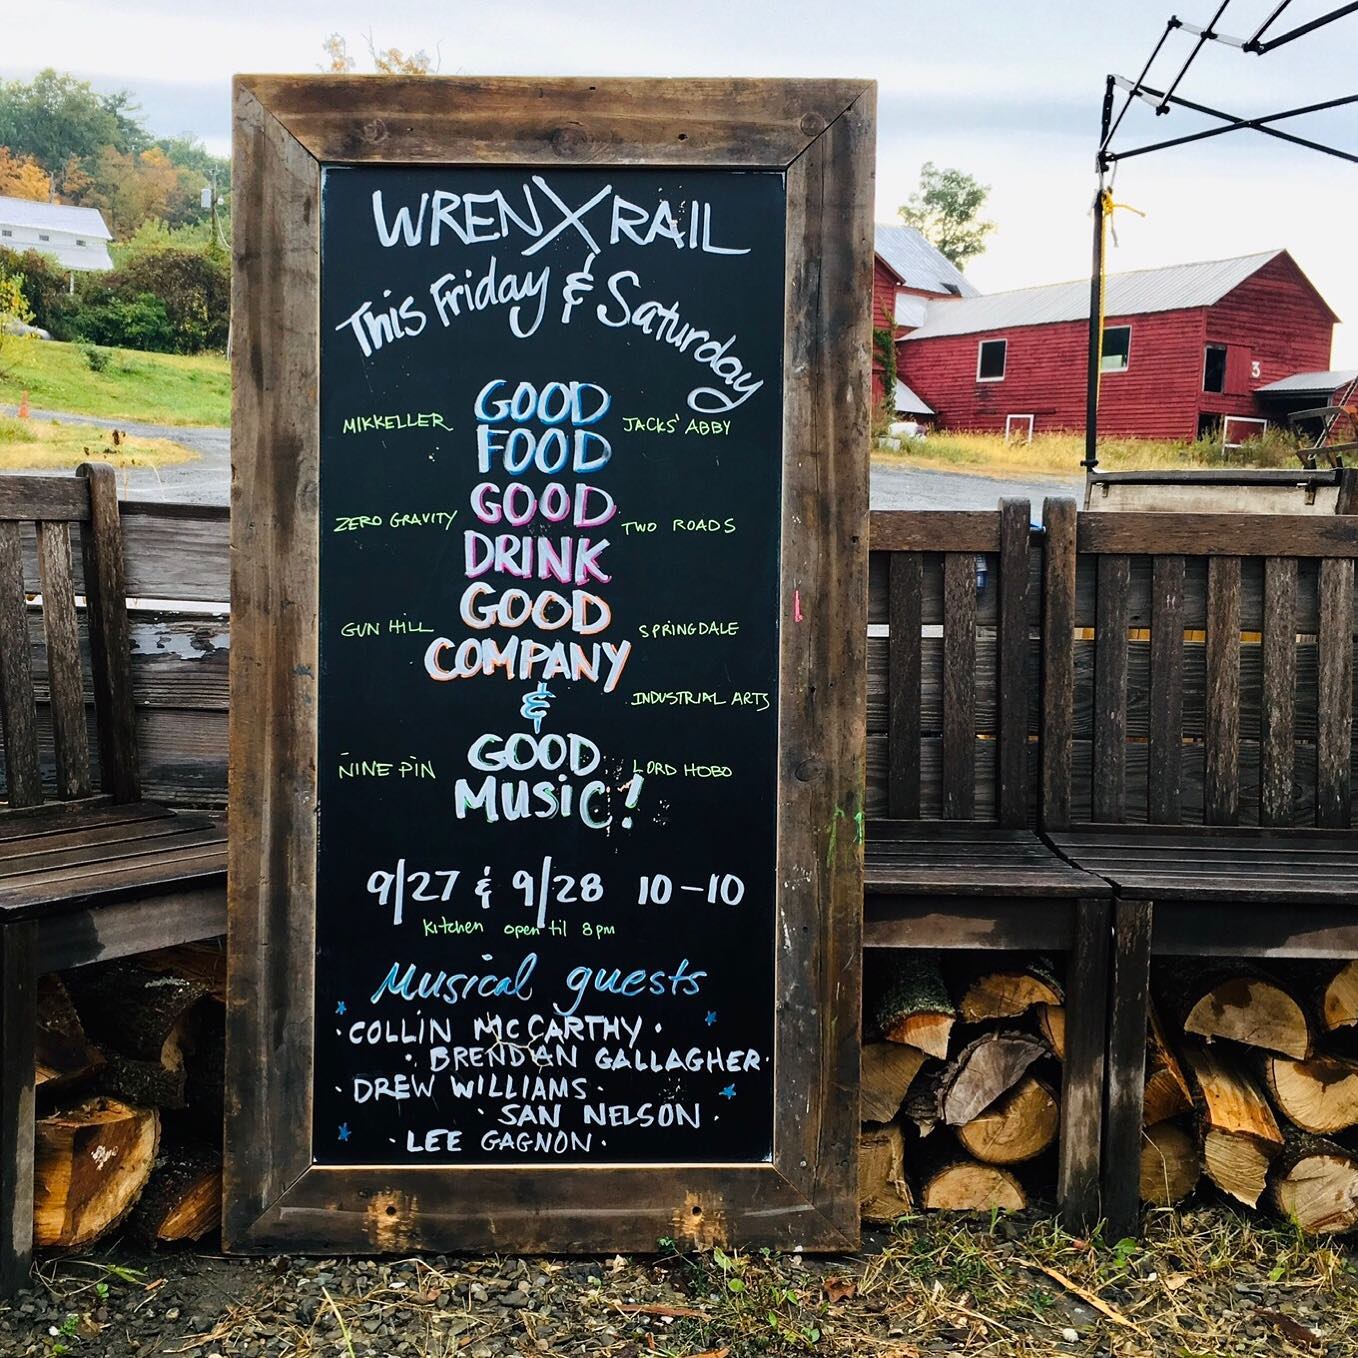 WREN X RAIL
This Friday & Saturday
GOOD
MIKKELLER
JACKS' ABBY
FOOD
GOOD
ZERO GRAVITY
TWO ROADS
DRINK
GOOD
GUN HILL
SPRINGDALE
COMPANY
&
INDUSTRIAL ARTS
GOOD
NINE PIN
LORD HOBO
MUSIC!
9/27 & 9/28 10-10
kitchen open til 8pm
Musical guests
· COLLIN MCCARTHY ·
· BRENDAN GALLAGHER ·
· DREW WILLIAMS ·
· SAN NELSON ·
· LEE GAGNON ·
3